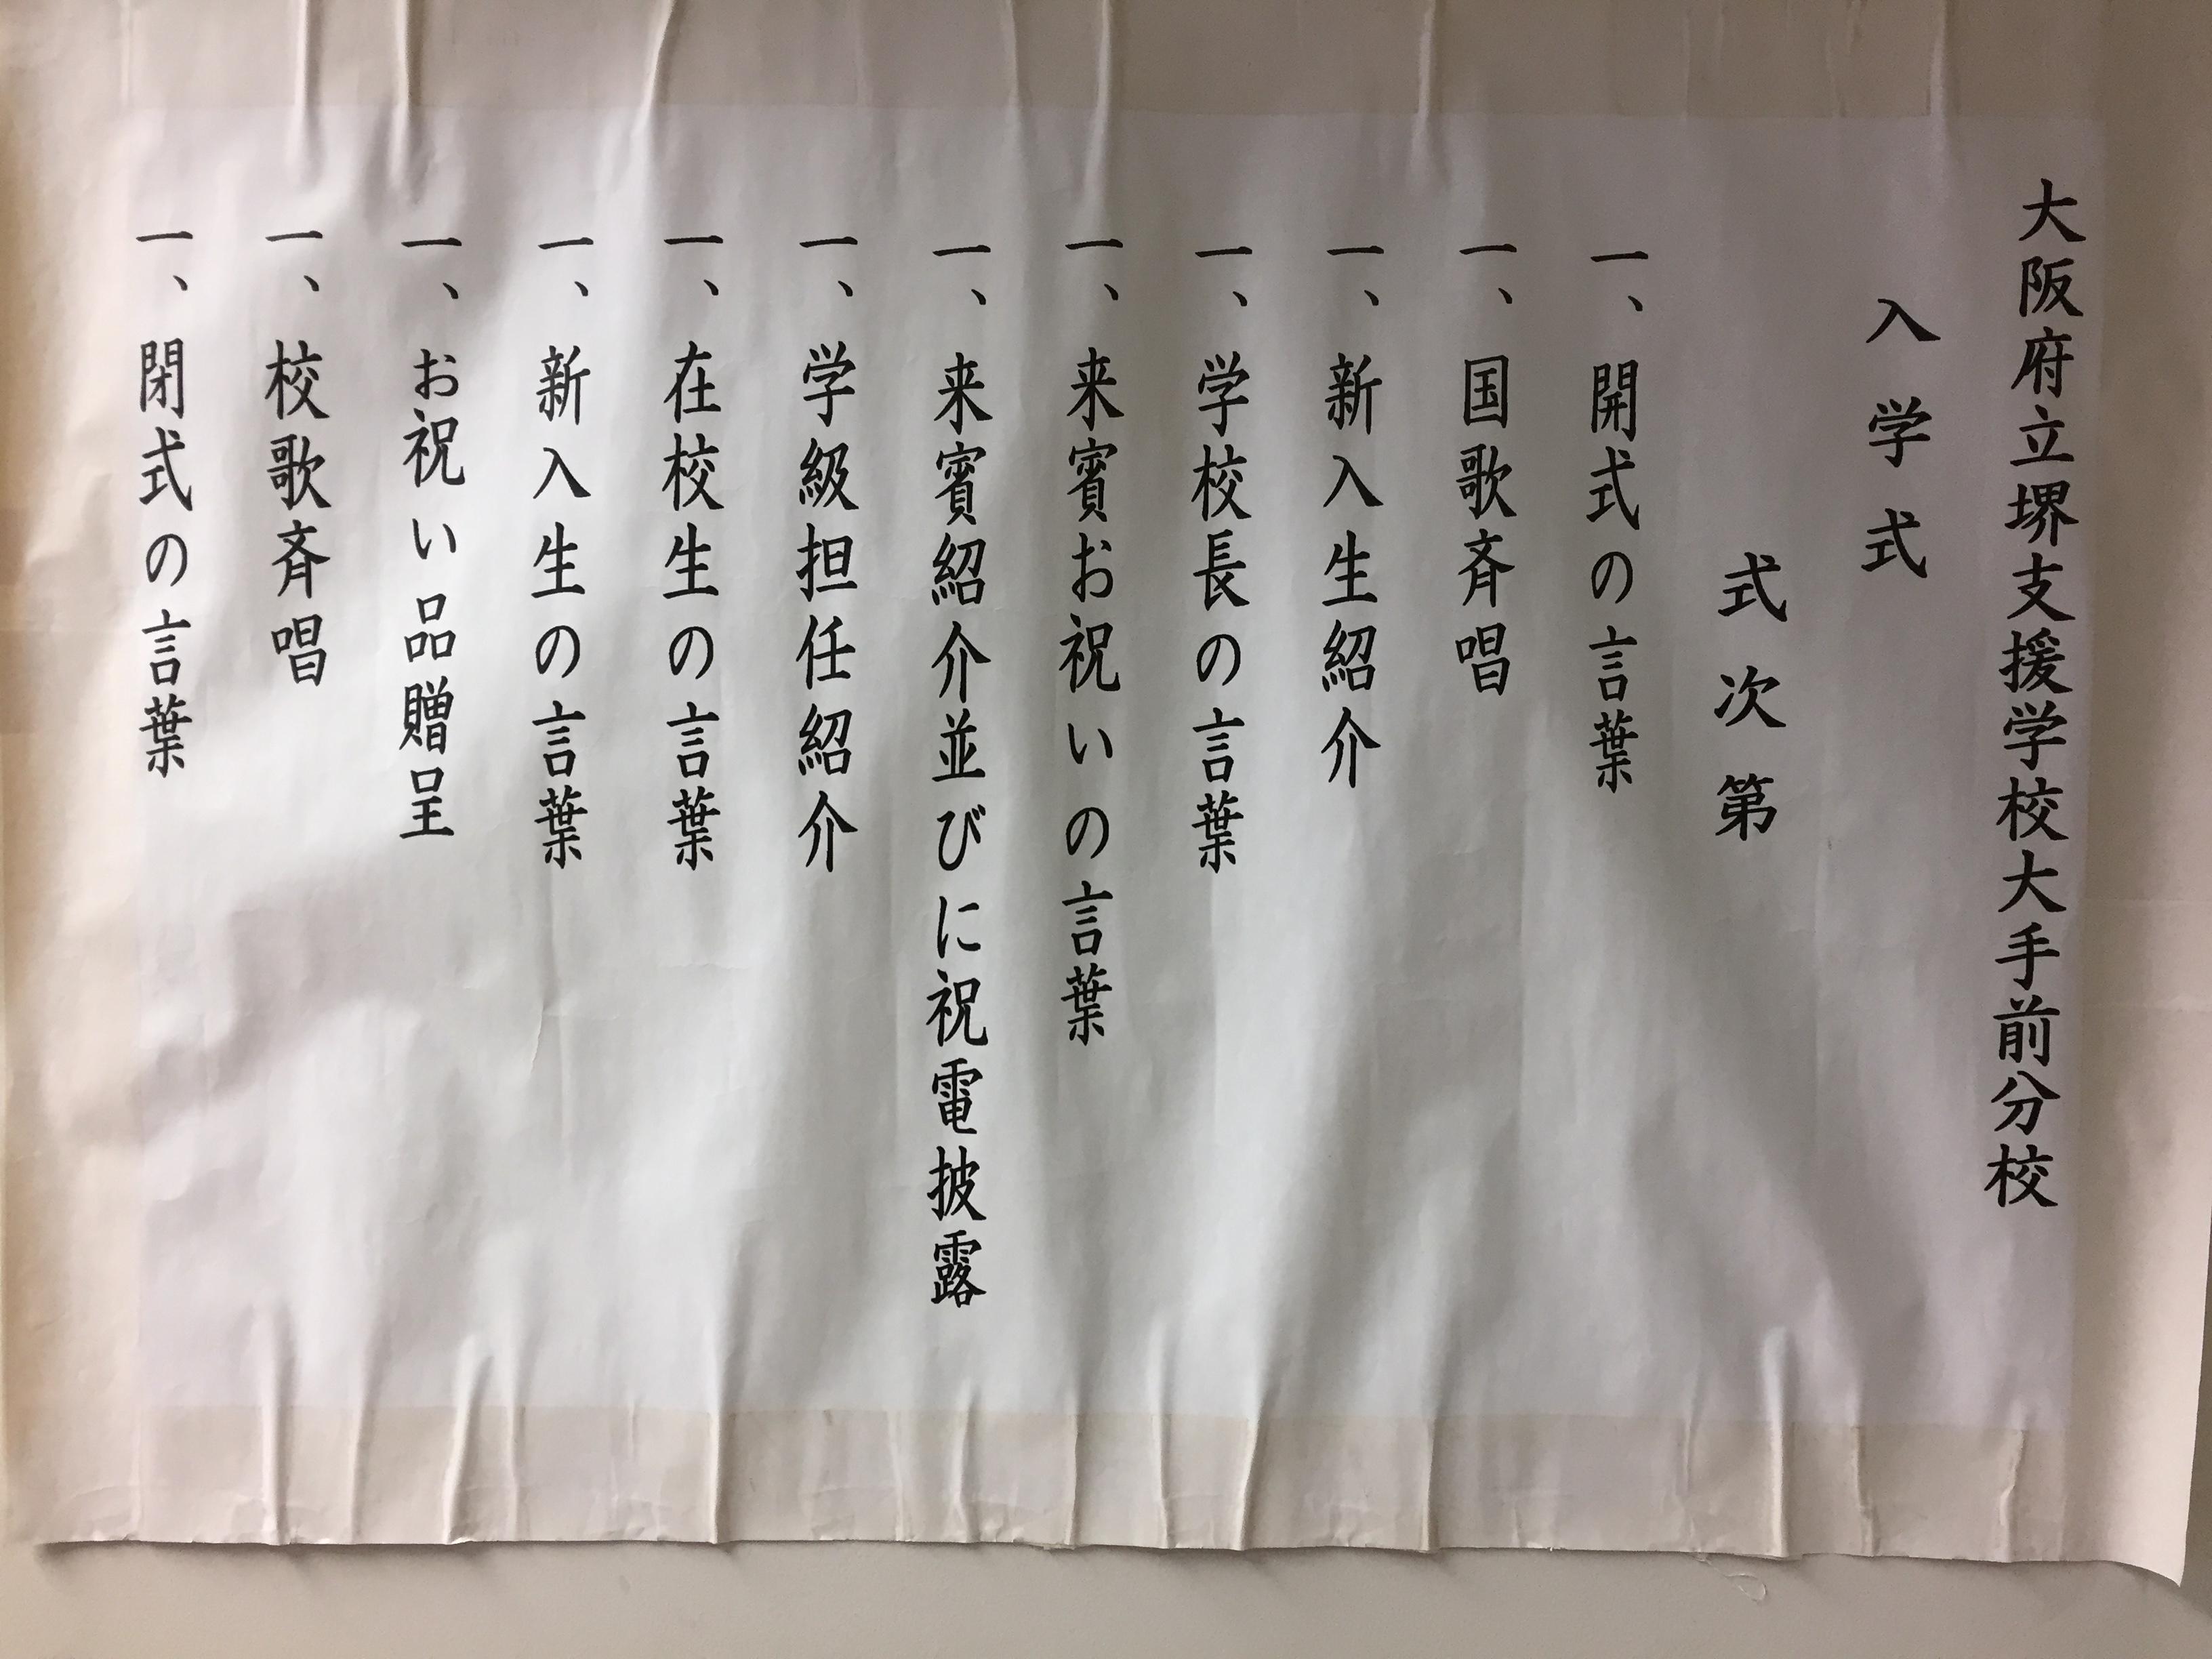 大阪府立堺支援学校大手前分校
入学式
式次第
一、開式の言葉
一、国歌斉唱
一、新入生紹介
一、学校長の言葉
一、来賓お祝いの言葉
一、来賓紹介並びに祝電披露
一、学級担任紹介
一、在校生の言葉
一、新入生の言葉
一、お祝い品贈呈
一、校歌斉唱
一、閉式の言葉